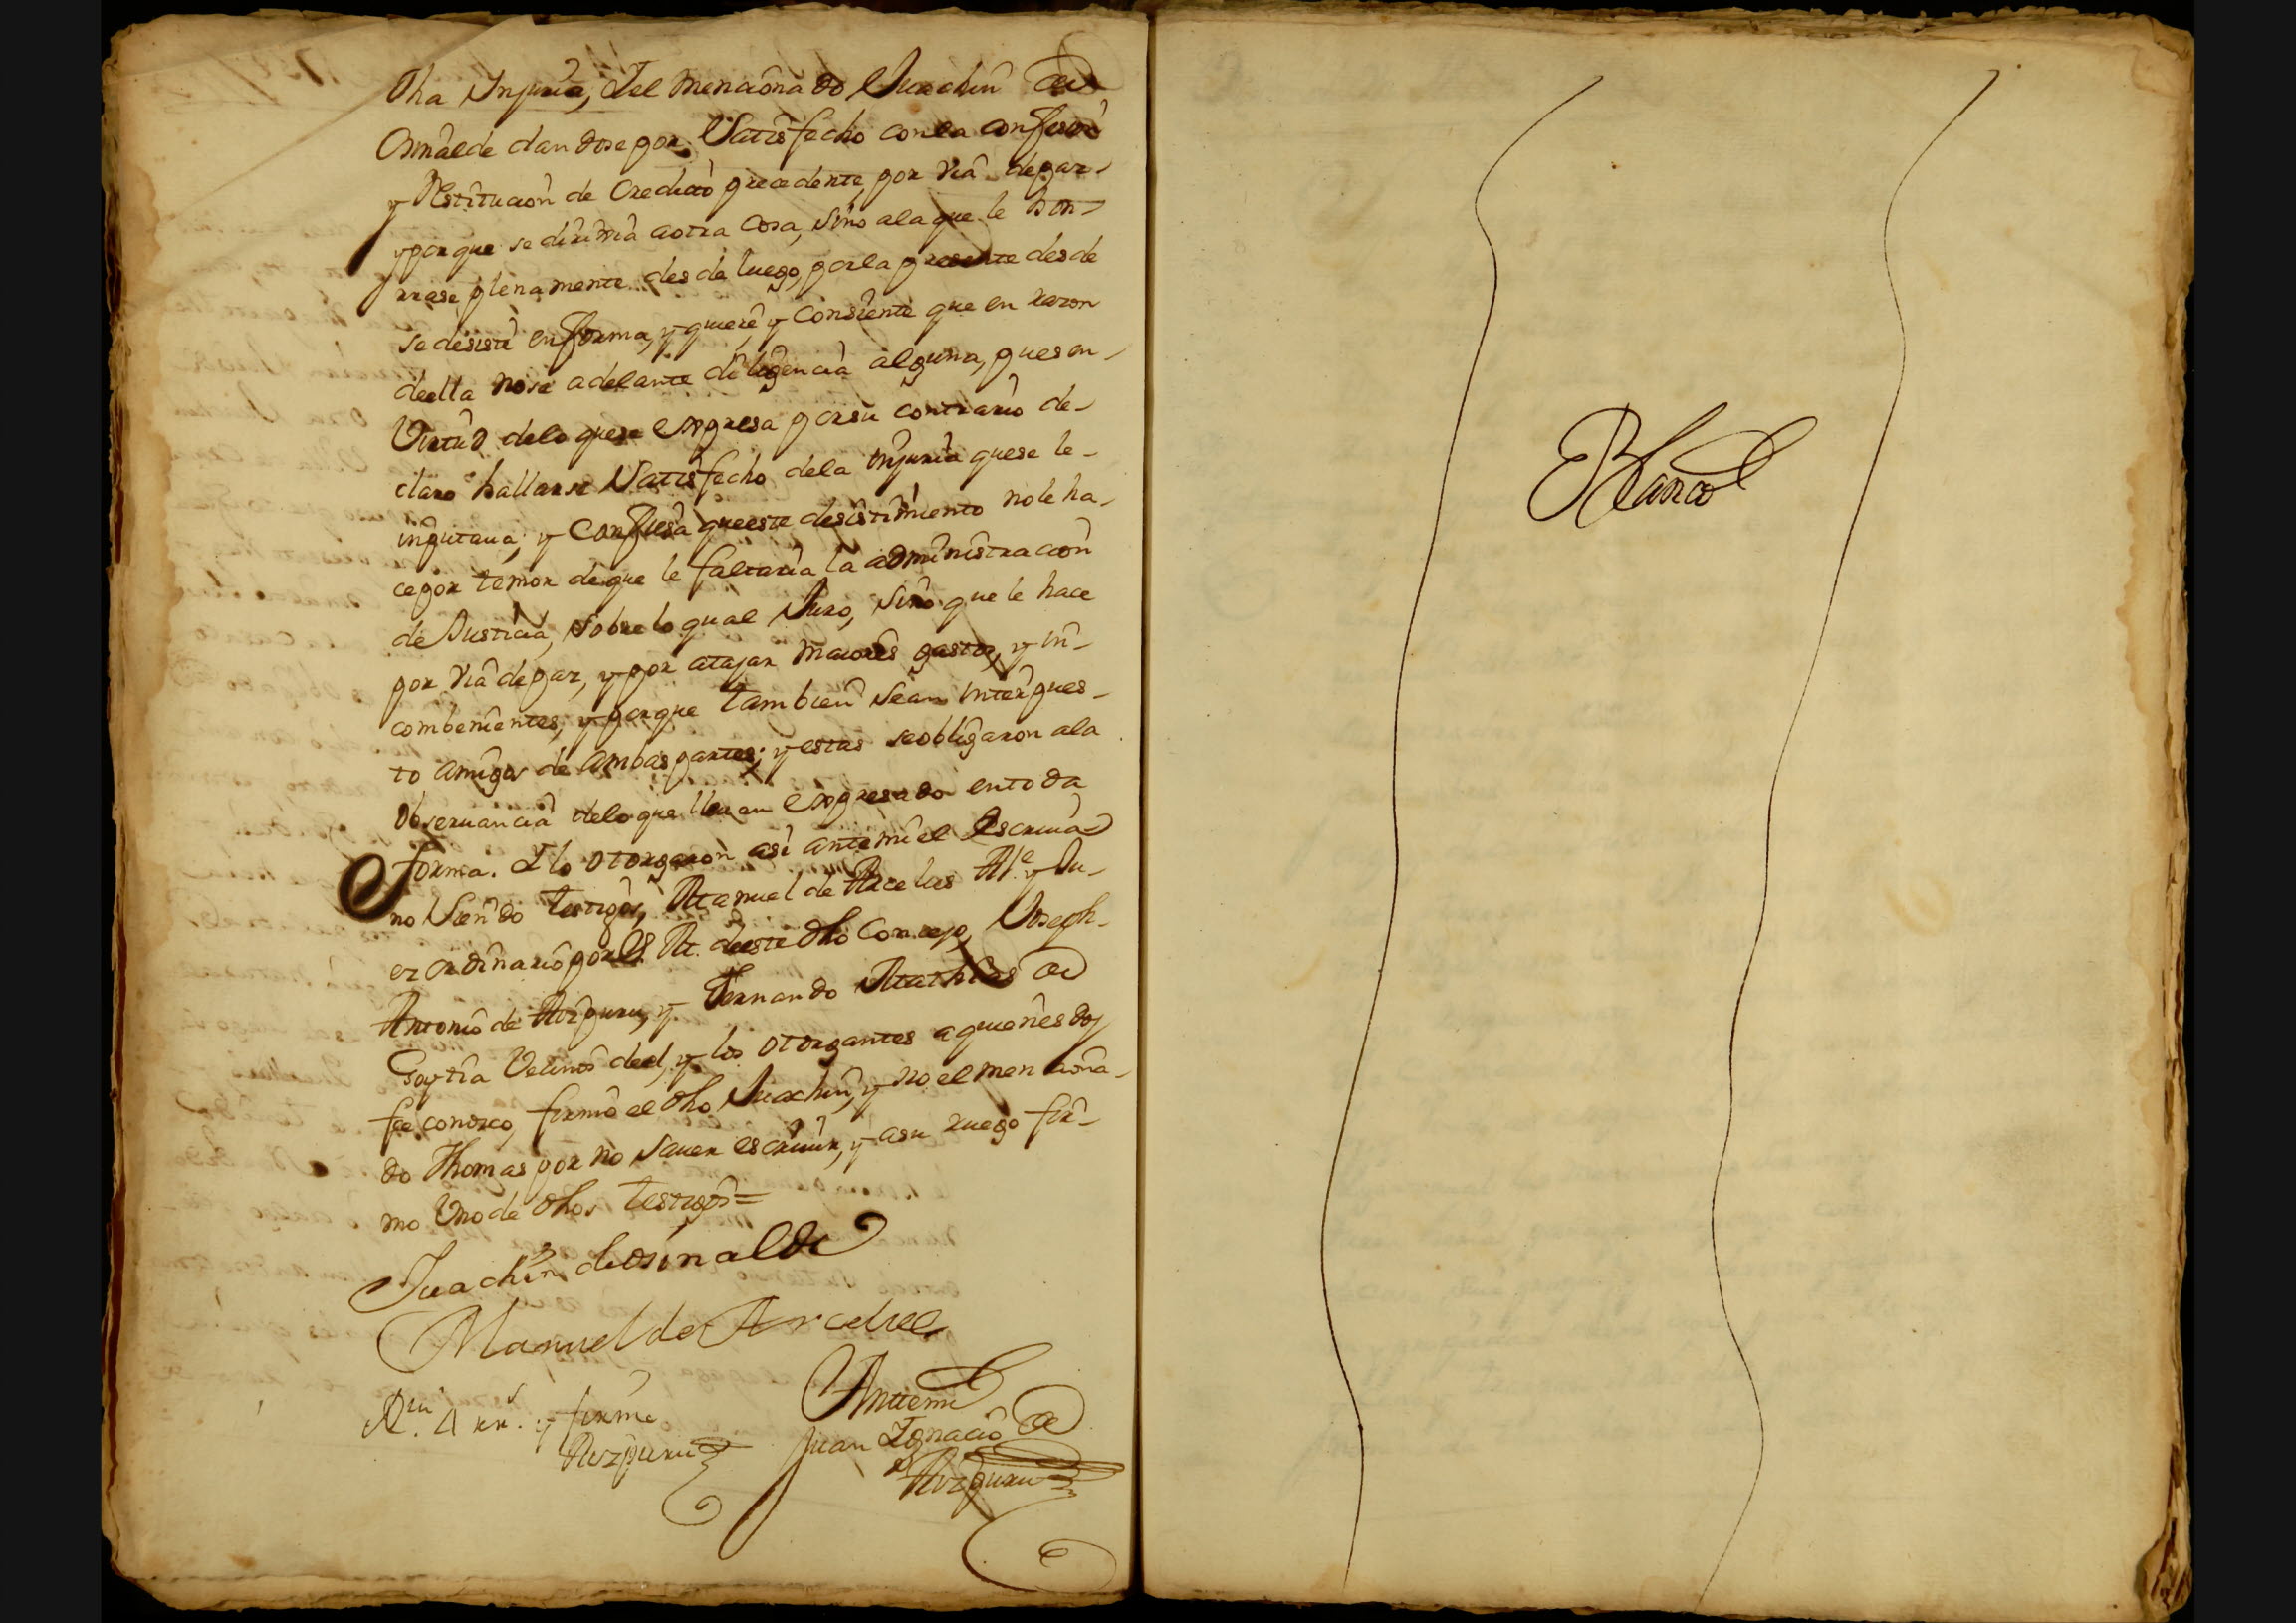 Dha Injuria, I el mencionado Juachin de
Osinalde dandose por Satisfecho con la confesion
y Restitucion de Credito precedente, por via de paz
y porque se dirimia a otra cosa, sino a la que le hon-
rrase plenamente desde luego, por la presente desde
se desiste en forma, y quiere, y consiente que en razon
de ella no se adelante diligencia alguna, pues en
Virtud de lo que se expresa por su contrario de-
claro hallarse Satisfecho de la injuria que se le
imputaua, y Confiesa que este desistimiento no le ha-
ce por temor de que le faltaria la administracion
de Justicia, sobre lo qual Juro, sino que le hace
por via de paz, y por atajar maiores gastos, y in-
combenientes, y porque tambien se an interpues-
to amigos de ambas partes; y estas se obligaron a la
Obseruancia de lo que lleuan expresado en toda
forma. I lo otorgaron asi ante mi el Escriua-
no Siendo testigos, Manuel de Arcelus Al.e y Ju-
ez ordinario por S. M. de este dho Concejo, Joseph
Antonio de Aizpuru, y Fernando Mathias de
Goytia Vecinos de el, y los otorgantes a quienes doy
fee conozco, firmo el dho Juachin, y no el menciona-
do Thomas por no sauer escriuir, y a su ruego fir-
mo Uno de dhos testigos=
Juachin de Osinalde
Manuel de Arcelus
Anttemi
R.ui 4 rr.s y firme
Juan Ignacio de
Aizpuru
Aizpuru
Blanco